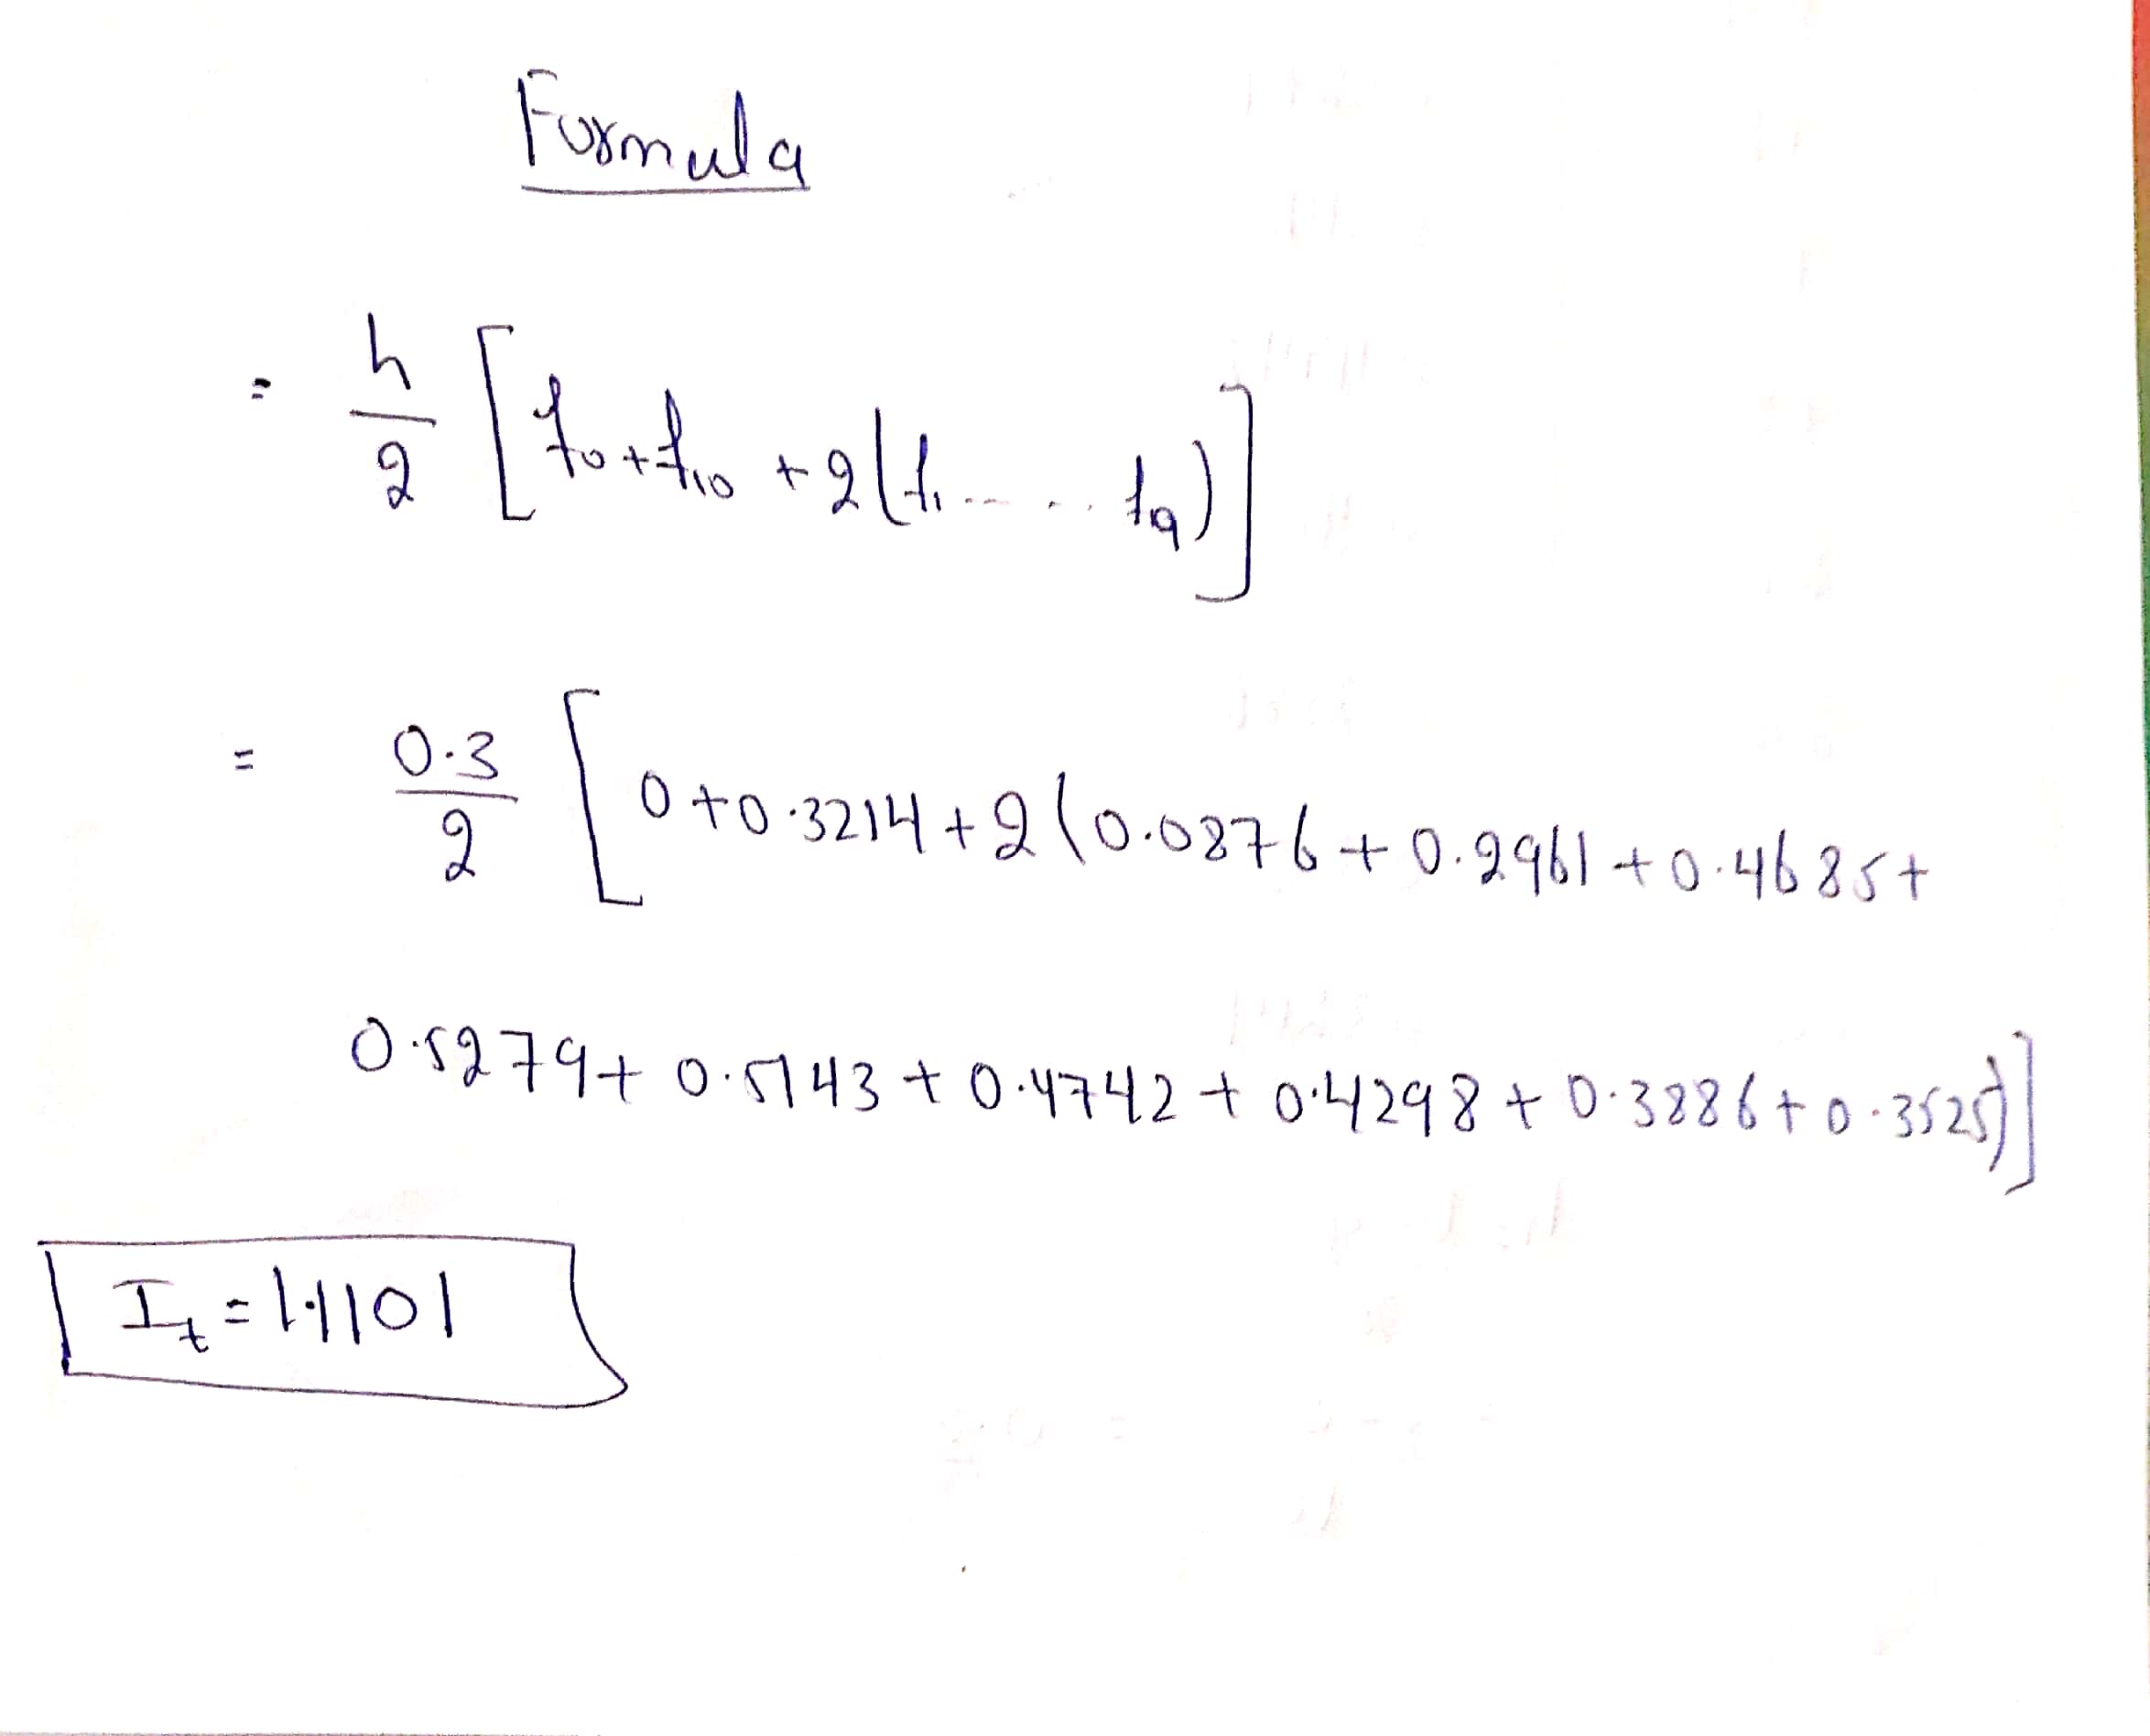 Formula
= h/2 [f₀ + f₁₀ + 2(f₁ ---- f₉)]
= 0.3/2 [0 + 0.3214 + 2(0.0876 + 0.2961 + 0.4685 +
0.5279 + 0.5143 + 0.4742 + 0.4298 + 0.3886 + 0.3525)]
I_t = 1.1101